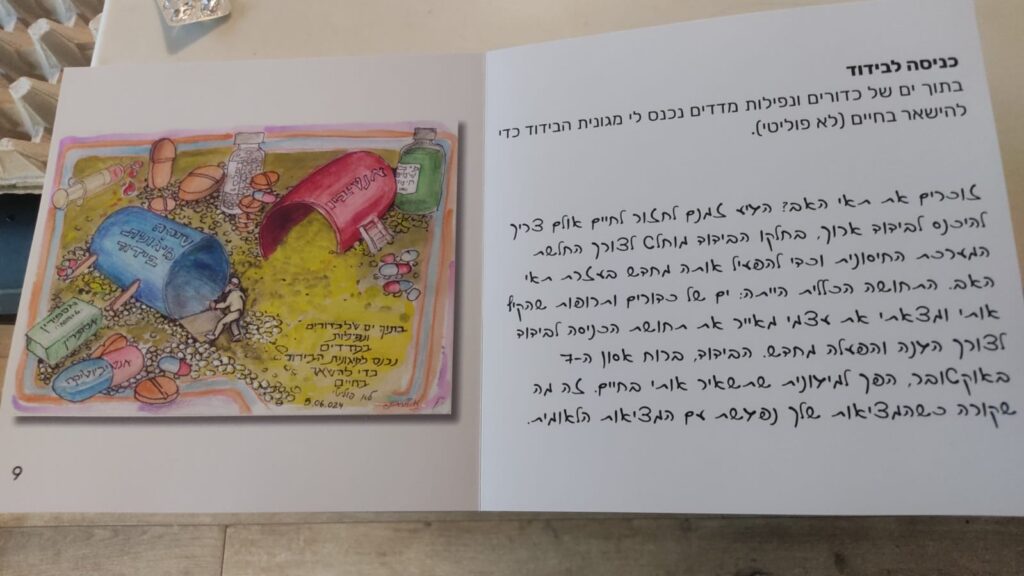 כניסה לבידוד
בתוך ים של כדורים ונפילות מדדים נכנס לי מגונית הבידוד כדי
להישאר בחיים (לא פוליטי).
זוכרים את תאי האב? הגיע זמנם לחזור לחיים אולם צריך
להיכנס לבידוד ארוך, בחלקו הבידוד מוחלט לצורך החלשת
המערכת החיסונית וכדי להפעיל אותה מחדש בעזרת תאי
האב. התחושה הכללית הייתה: ים של כדורים ותרופות שהקיף
אותי ומצאתי את עצמי מאייר את תחושת הכניסה לבידוד
לצורך הגנה והפעלה מחדש. הבידוד, ברוח אסון ה-7
באוקטובר, הפך למיגונית שתשאיר אותי בחיים. זה מה
שקורה כשהמציאות שלך נפגשת עם המציאות הלאומית.
בתוך ים של כדורים
ונפילות
במדדים
נכנס למגונית הבידוד
כדי להשאר
בחיים
לא פוליטי
8.06.024
אנטיביוטיקה
9